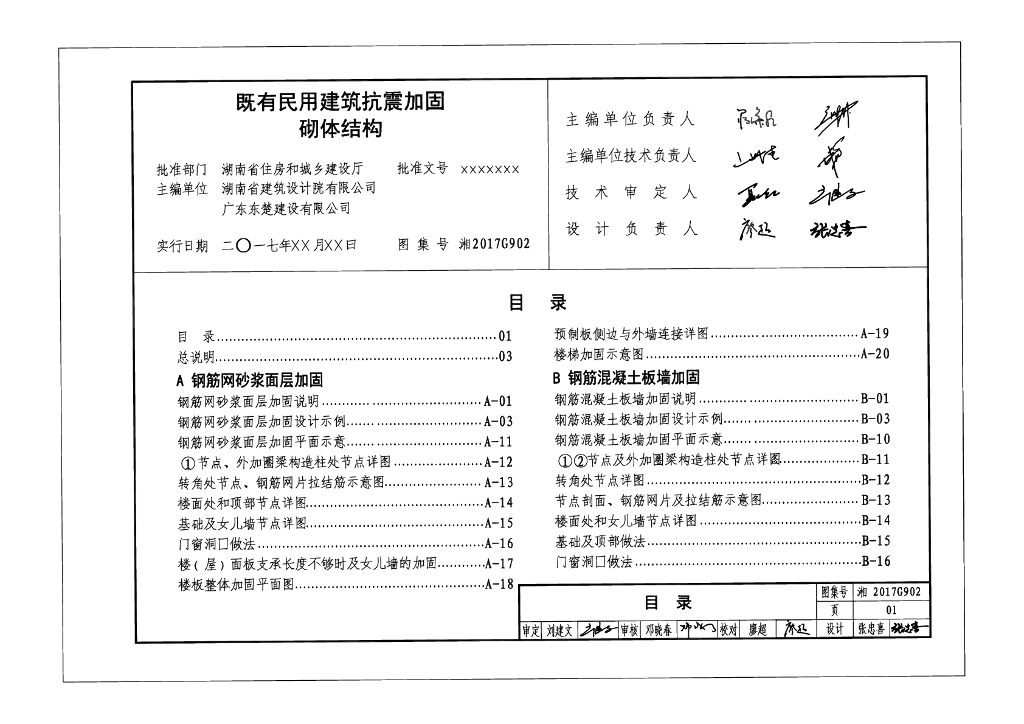 既有民用建筑抗震加固
砌体结构
批准部门 湖南省住房和城乡建设厅 批准文号 ×××××××
主编单位 湖南省建筑设计院有限公司
广东东楚建设有限公司
实行日期 二〇一七年XX月XX日 图集号 湘2017G902
主编单位负责人
主编单位技术负责人
技术审定人
设计负责人
目 录
目 录……01
总说明……03
A 钢筋网砂浆面层加固
钢筋网砂浆面层加固说明……A-01
钢筋网砂浆面层加固设计示例……A-03
钢筋网砂浆面层加固平面示意……A-11
①节点、外加圈梁构造柱处节点详图……A-12
转角处节点、钢筋网片拉结筋示意图……A-13
楼面处和顶部节点详图……A-14
基础及女儿墙节点详图……A-15
门窗洞口做法……A-16
楼(屋)面板支承长度不够时及女儿墙的加固……A-17
楼板整体加固平面图……A-18
预制板侧边与外墙连接详图……A-19
楼梯加固示意图……A-20
B 钢筋混凝土板墙加固
钢筋混凝土板墙加固说明……B-01
钢筋混凝土板墙加固设计示例……B-03
钢筋混凝土板墙加固平面示意……B-10
①②节点及外加圈梁构造柱处节点详图……B-11
转角处节点详图……B-12
节点剖面、钢筋网片及拉结筋示意图……B-13
楼面处和女儿墙节点详图……B-14
基础及顶部做法……B-15
门窗洞口做法……B-16
目 录
图集号 湘 2017G902
页 01
审定 刘建文 审核 邓晓春 校对 廖超 廖超 设计 张忠喜 张忠喜